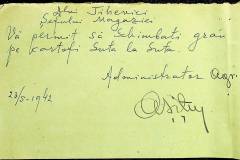 Dlui Tihenici
Șefului Magaziei
Vă permit să Schimbați grâu
pe kartofi Suta la Suta.
Administrator Agr
23/5-1942